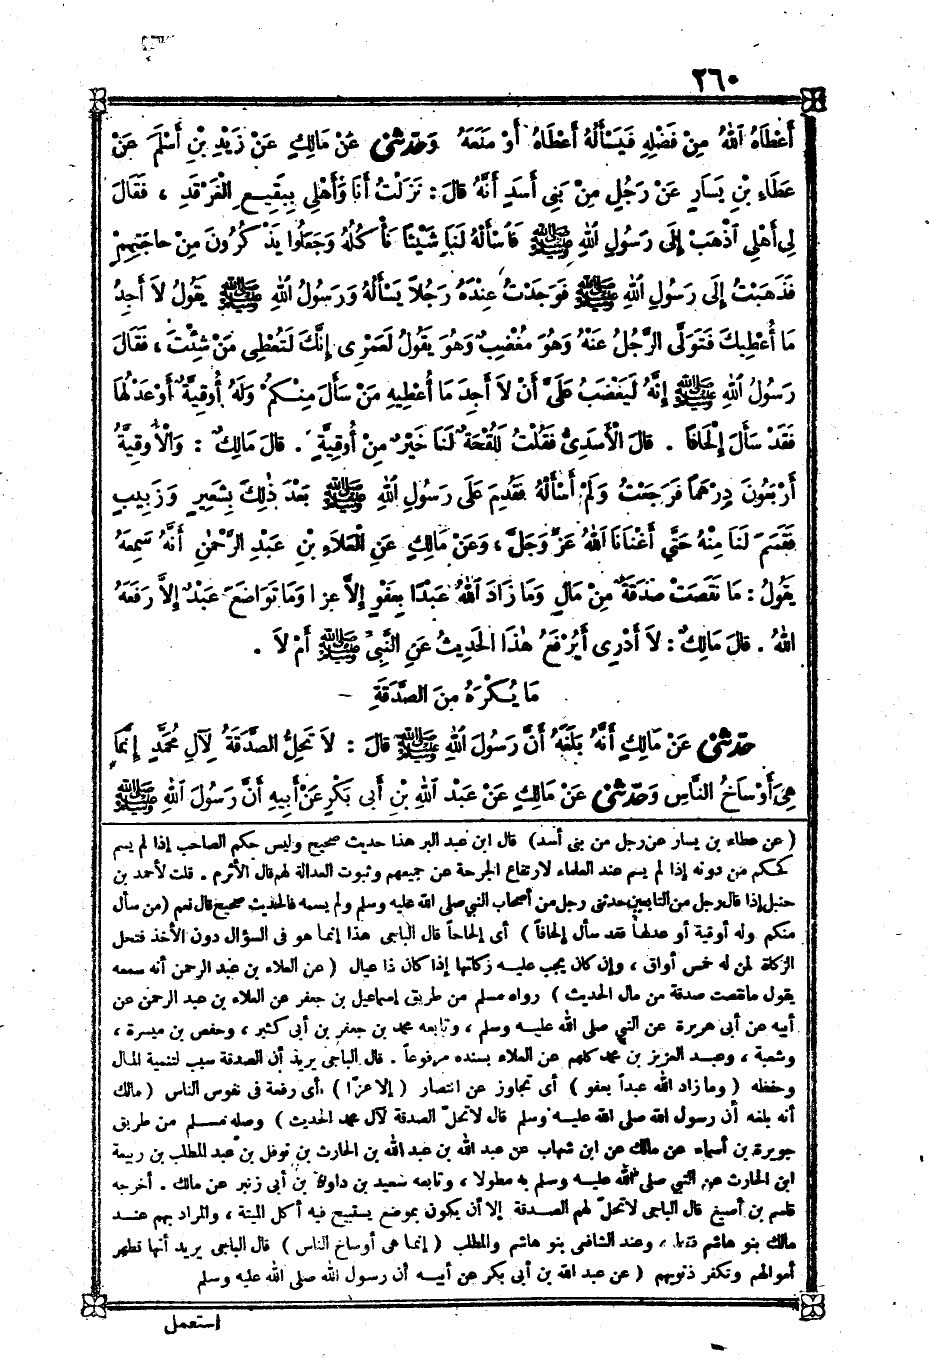 ٢٦٠
أَعْطَاهُ اللهُ مِنْ فَضْلِهِ فَيَسْأَلَهُ أَعْطَاهُ أَوْ مَنَعَهُ وَحَدَّثَنِي عَنْ مَالِكٍ عَنْ زَيْدِ بْنِ أَسْلَمَ عَنْ
عَطَاءِ بْنِ يَسَارٍ عَنْ رَجُلٍ مِنْ بَنِي أَسَدٍ أَنَّهُ قَالَ : نَزَلْتُ أَنَا وَأَهْلِي بِبَقِيعِ الْغَرْقَدِ ، فَقَالَ
لِي أَهْلِي اذْهَبْ إِلَى رَسُولِ اللهِ ﷺ فَاسْأَلْهُ لَنَا شَيْئًا نَأْكُلُهُ وَجَعَلُوا يَذْكُرُونَ مِنْ حَاجَتِهِمْ
فَذَهَبْتُ إِلَى رَسُولِ اللهِ ﷺ فَوَجَدْتُ عِنْدَهُ رَجُلاً يَسْأَلُهُ وَرَسُولُ اللهِ ﷺ يَقُولُ لاَ أَجِدُ
مَا أُعْطِيكَ فَتَوَلَّى الرَّجُلُ عَنْهُ وَهُوَ مُغْضَبٌ وَهُوَ يَقُولُ لَعَمْرِي إِنَّكَ لَتُعْطِي مَنْ شِئْتَ ، فَقَالَ
رَسُولُ اللهِ ﷺ إِنَّهُ لَيَغْضَبُ عَلَيَّ أَنْ لاَ أَجِدَ مَا أُعْطِيهِ مَنْ سَأَلَ مِنْكُمْ وَلَهُ أُوقِيَّةٌ أَوْ عَدْلُهَا
فَقَدْ سَأَلَ إِلْحَافًا . قَالَ الْأَسَدِيُّ فَقُلْتُ لَلَقْحَةٌ لَنَا خَيْرٌ مِنْ أُوقِيَّةٍ . قَالَ مَالِكٌ : وَالْأُوقِيَّةُ
أَرْبَعُونَ دِرْهَمًا فَرَجَعْتُ وَلَمْ أَسْأَلْهُ فَقُدِمَ عَلَى رَسُولِ اللهِ ﷺ بَعْدَ ذَلِكَ بِشَعِيرٍ وَزَبِيبٍ
فَقَسَمَ لَنَا مِنْهُ حَتَّى أَغْنَانَا اللهُ عَزَّ وَجَلَّ ، وَعَنْ مَالِكٍ عَنِ الْعَلاَءِ بْنِ عَبْدِ الرَّحْمٰنِ أَنَّهُ سَمِعَهُ
يَقُولُ : مَا نَقَصَتْ صَدَقَةٌ مِنْ مَالٍ وَمَا زَادَ اللهُ عَبْدًا بِعَفْوٍ إِلاَّ عِزًّا وَمَا تَوَاضَعَ عَبْدٌ إِلاَّ رَفَعَهُ
اللهُ . قَالَ مَالِكٌ : لاَ أَدْرِي أَيُرْفَعُ هٰذَا الْحَدِيثُ عَنِ النَّبِيِّ ﷺ أَمْ لاَ .
مَا يُكْرَهُ مِنَ الصَّدَقَةِ –
حَدَّثَنِي عَنْ مَالِكٍ أَنَّهُ بَلَغَهُ أَنَّ رَسُولَ اللهِ ﷺ قَالَ : لاَ تَحِلُّ الصَّدَقَةُ لِآلِ مُحَمَّدٍ إِنَّمَا
هِيَ أَوْسَاخُ النَّاسِ وَحَدَّثَنِي عَنْ مَالِكٍ عَنْ عَبْدِ اللهِ بْنِ أَبِي بَكْرٍ عَنْ أَبِيهِ أَنَّ رَسُولَ اللهِ ﷺ
( عن عطاء بن يسار عن رجل من بنى أسد) قال ابن عبد البر هذا حديث صحيح وليس حكم الصاحب إذا لم يسم
كحكم من دونه إذا لم يسم عند العلماء لارتفاع الجرحة عن جميعهم وثبوت العدالة لهم قال الأثرم . قلت لأحمد بن
حنبل إذا قال رجل من التابعين حدثنى رجل من أصحاب النبي صلى الله عليه وسلم ولم يسمه فالحديث صحيح قال نعم (من سأل
منكم وله أوقية أو عدلها فقد سأل إلحافاً ) أى إلحاحاً قال الباجى هذا إنما هو فى السؤال دون الأخذ فتحل
الزكاة لمن له خمس أواق ، وإن كان يجب عليه زكاتها إذا كان ذا عيال ( عن العلاء بن عبد الرحمن أنه سمعه
يقول مانقصت صدقة من مال الحديث ) رواه مسلم من طريق إسماعيل بن جعفر عن العلاء بن عبد الرحمن عن
أبيه عن أبى هريرة عن النبي صلى الله عليه وسلم ، وتابعه محمد بن جعفر بن أبى كثير ، وحفص بن ميسرة ،
وشعبة ، وعبد العزيز بن محمد كلهم عن العلاء بسنده مرفوعاً . قال الباجى يريد أن الصدقة سبب لتنمية المال
وحفظه ( وما زاد الله عبداً بعفو ) أى تجاوز عن انتصار ( إلا عزّا ) أى رفعة فى نفوس الناس ( مالك
أنه بلغه أن رسول الله صلى الله عليه وسلم قال لاتحلّ الصدقة لآل محمد الحديث ) وصله مسلم من طريق
جويرية بن أسماء عن مالك عن ابن شهاب عن عبد الله بن عبد الله بن الحارث بن نوفل بن عبد المطلب بن ربيعة
ابن الحارث عن النبي صلى الله عليه وسلم به مطولا ، وتابعه سعيد بن داود بن أبى زنبر عن مالك . أخرجه
قاسم بن أصبغ قال الباجى لاتحلّ لهم الصدقة إلا أن يكون بموضع يستبيح فيه أكل الميتة ، والمراد بهم عند
مالك بنو هاشم فقط ، وعند الشافى بنو هاشم والمطلب ( إنما هى أوساخ الناس ) قال الباجى يريد أنها تطهر
أموالهم وتكفر ذنوبهم ( عن عبد الله بن أبى بكر عن أبيه أن رسول الله صلى الله عليه وسلم
استعمل